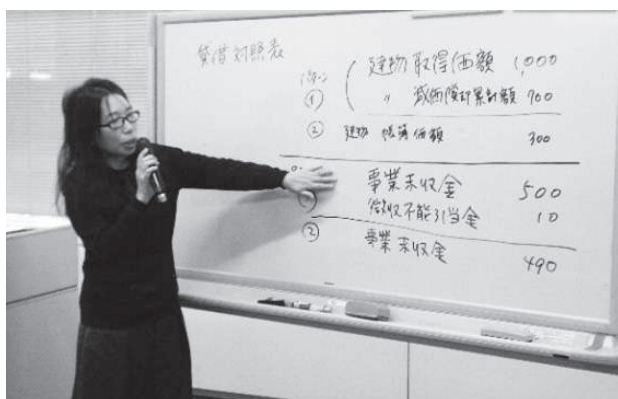 貸借対照表
建物取得価額 1,000
① 〃 減価償却累計額 700
② 建物 帳簿価額 300
事業未収金 500
徴収不能引当金 10
② 事業未収金 490